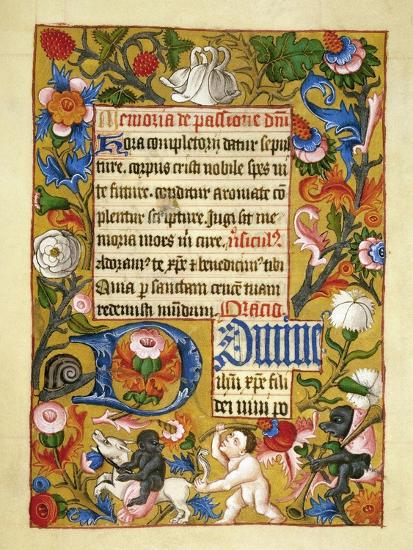 Memoria de passione dm̄
Hora completorij datur sepul
ture. corpus cristi nobile spes vi
te future. conditur aromate cō
plentur scripture. Jugi sit me
moria mors m̄ cure. v̄siculꝰ.
Adoramꝰ te xp̄e ⁊ benedicimꝰ tibi
Quia p̄ sanctam crucē tuam
redemisti mūdum. Oracio
Domine
ihū xp̄e fili
dei viui po